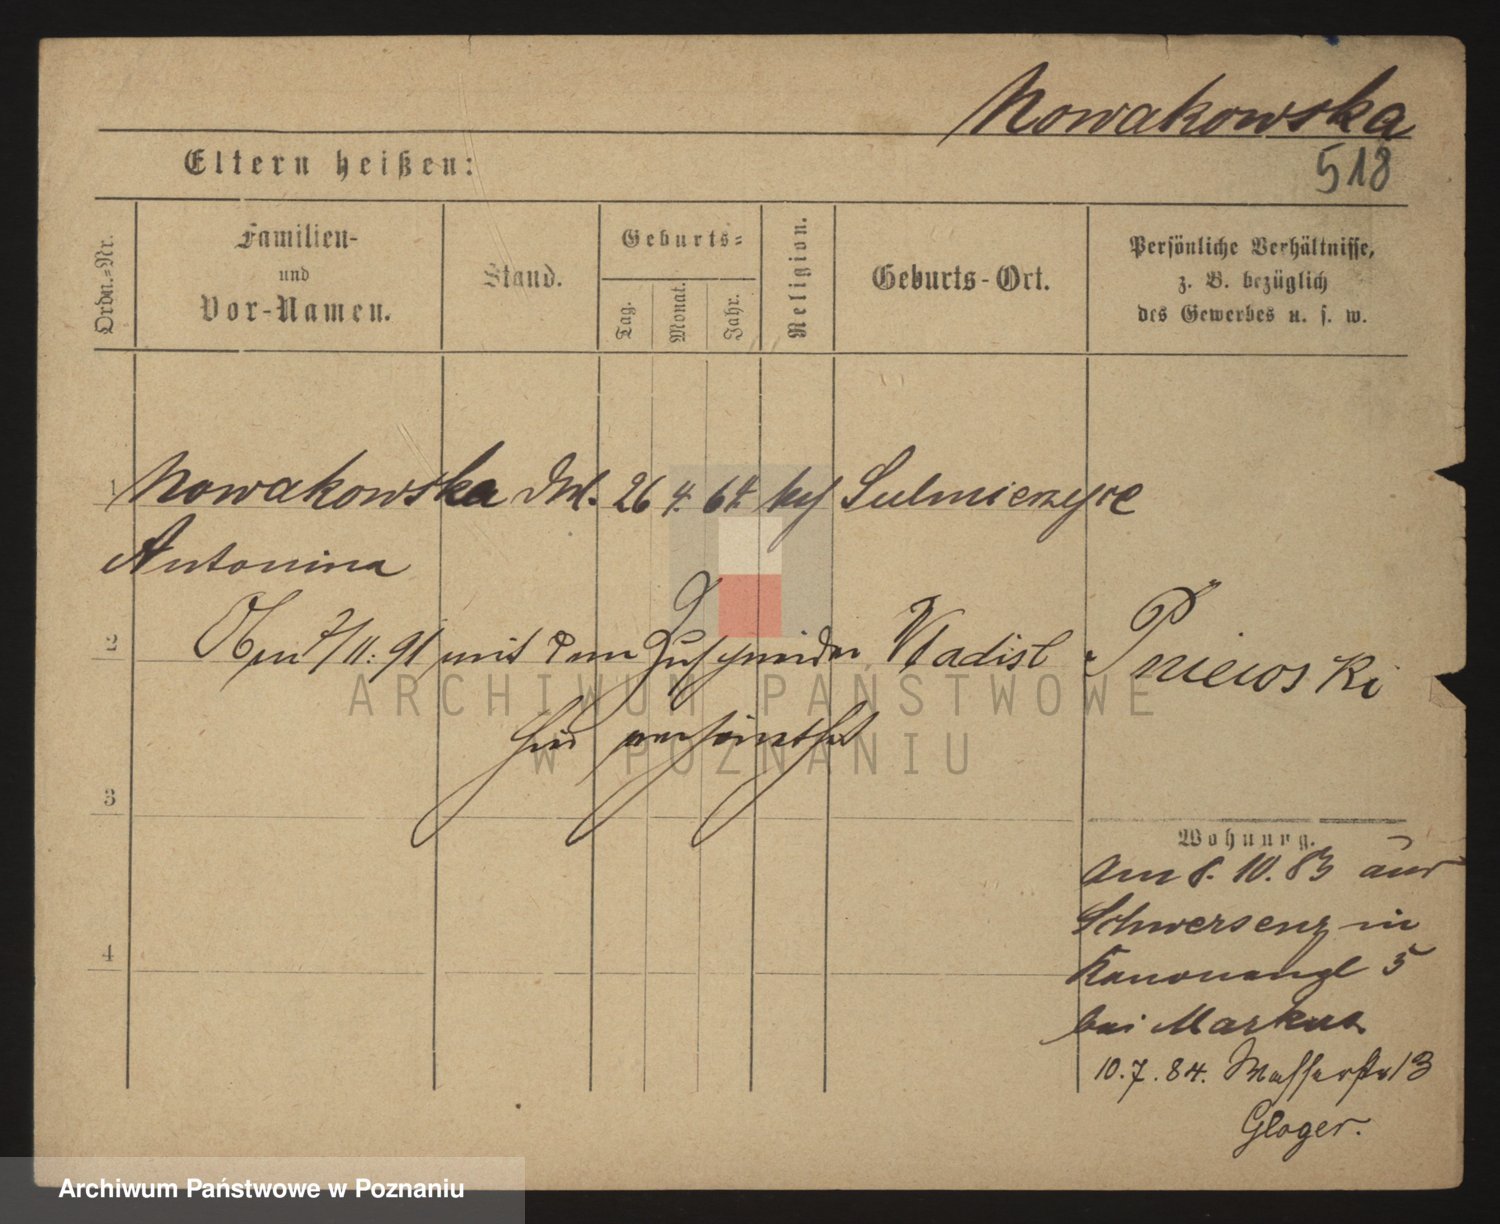 Nowakowska
518
Eltern heißen:
Ordn.-Nr.
Familien-
und
Vor-Namen.
Stand.
Geburts-
Tag.
Monat.
Jahr.
Religion.
Geburts-Ort.
Persönliche Verhältnisse,
z. B. bezüglich
des Gewerbes u. s. w.
1 Nowakowska 26 4. 64. Sulmierzyce
Antonina
2
mit dem Zuschneider Wladisl Pniewski
hier
3
4
Wohnung.
am 8. 10. 83 aus
Schwersenz in
5
bei Markus
10. 7. 84. Wasserstr 13
Gloger.
ARCHIWUM PAŃSTWOWE
W POZNANIU
Archiwum Państwowe w Poznaniu